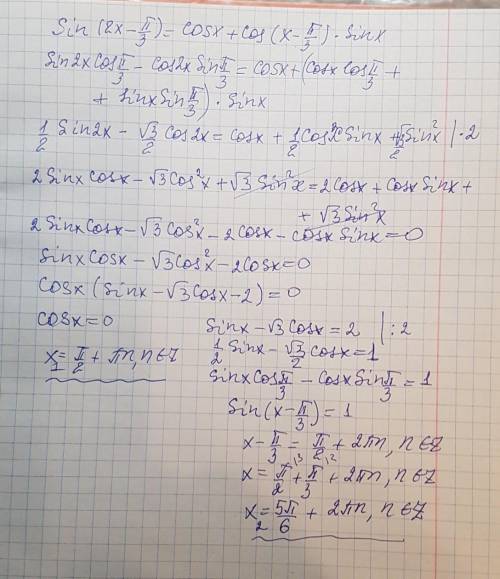 Sin(2x-π/3) = cosx + cos(x-π/3)·sinx
Sin2x cosπ/3 - cos2x sinπ/3 = cosx + (cosx cosπ/3 +
+ sinx sinπ/3)·sinx
1/2 Sin2x - √3/2 cos2x = cosx + 1/2 cosx sinx + √3/2 sin²x |·2
2Sinxcosx - √3cos²x + √3 Sin²x = 2cosx + cosx sinx +
+ √3Sin²x
2Sinxcosx - √3cos²x - 2cosx - cosx sinx = 0
Sinxcosx - √3cos²x - 2cosx = 0
cosx (sinx - √3cosx - 2) = 0
cosx = 0
x₁ = π/2 + πn, n∈Z
Sinx - √3cosx = 2 |:2
1/2 Sinx - √3/2 cosx = 1
Sinxcosπ/3 - cosx sinπ/3 = 1
Sin(x-π/3) = 1
x - π/3 = π/2 + 2πn, n∈Z
x = π/2 + π/3 + 2πn, n∈Z
x₂ = 5π/6 + 2πn, n∈Z